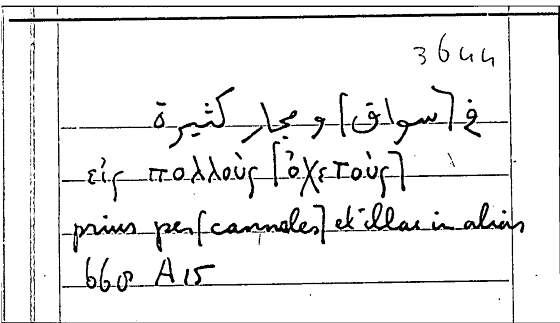 3644
في [سواق] ومجار كثيرة
εἰς πολλοὺς [ὀχετοὺς]
prius per [cannales] et illac in alias
668 A 15